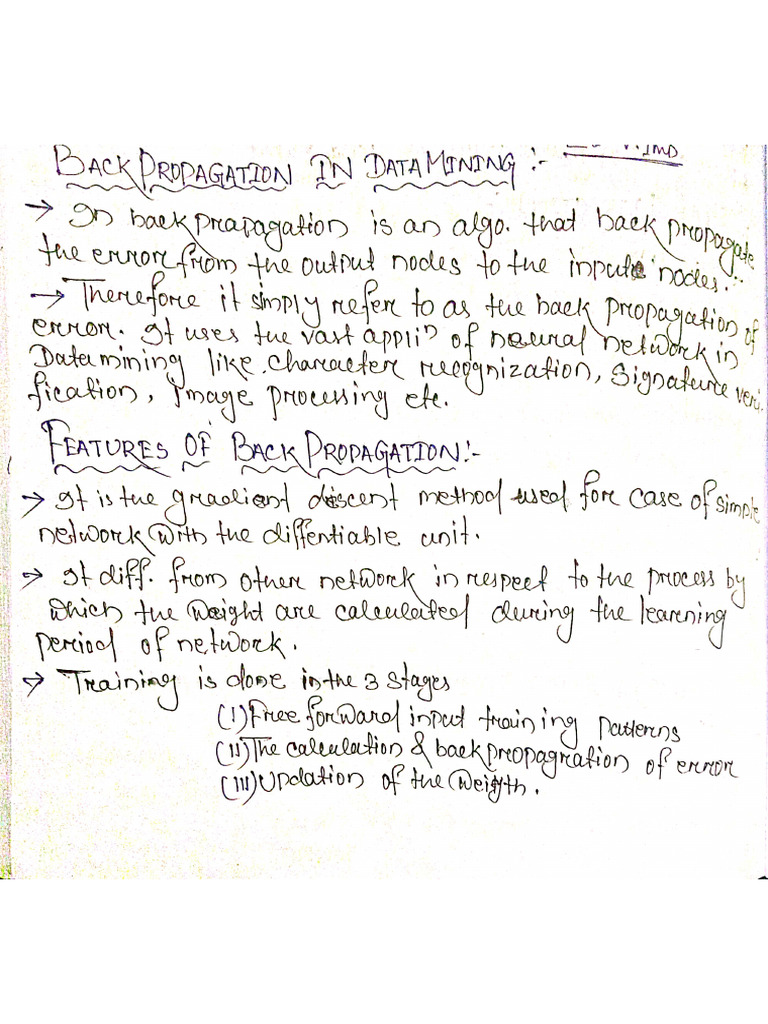 BACK PROPAGATION IN DATA MINING :- IMD
→ In back prapagation is an algo. that back propagate
the error from the output nodes to the inpute nodes.
→ Therefore it simply refer to as the back propagation of
error. It uses the vast applin of neural network in
Data mining like character recognization, Signature veri
fication, Image processing etc.
FEATURES OF BACK PROPAGATION:-
→ It is the gradient discent method used for case of simple
network with the diffentiable unit.
→ It diff. from other network in respect to the process by
which the weight are calculated during the learning
period of network.
→ Training is done in the 3 stages
(I) Free forward input training patterns
(II) The calculation & back propagration of error
(III) Updation of the weigth.